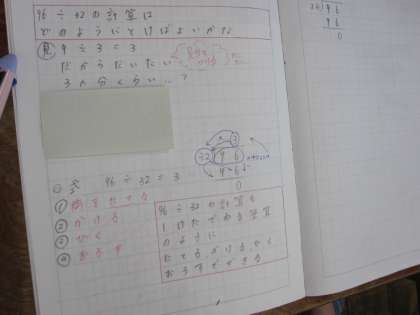 96÷32の計算は
どのようにとけばよいかな
見 9÷3=3
だからだいたい
3人分くらい…?
3
32 96
96
0
答 96÷32=3
① たてる
② かける
③ ひく
④ おろす
96÷32の計算も
1けたでわる計算
のように
たてるかけるひく
おろすでできる
96
96
0